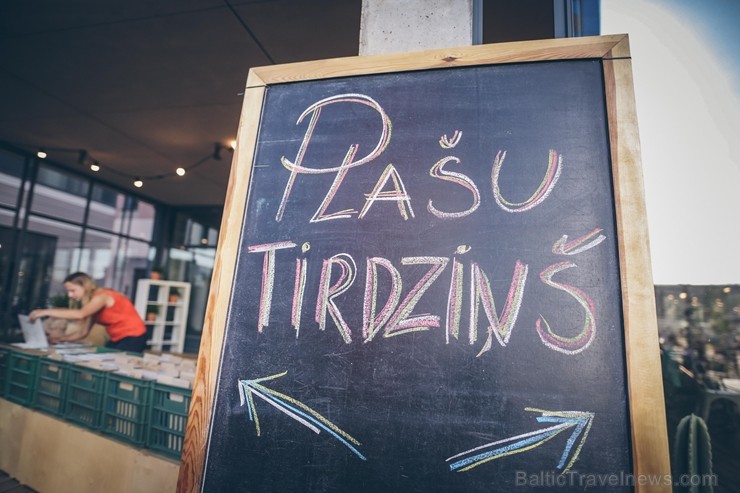 PLAŠU
TIRDZIŅŠ
BalticTravelnews.com